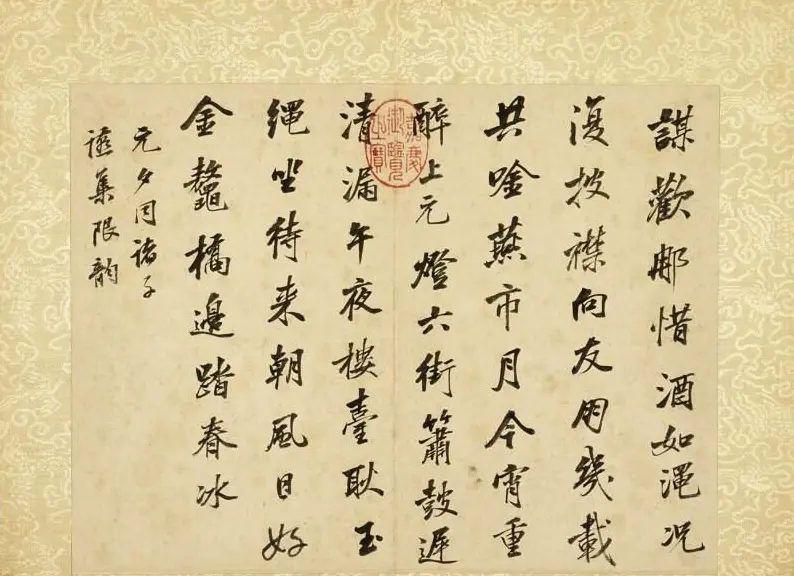 謀歡那惜酒如澠況
復披襟向友朋幾載
共唫燕市月今宵重
醉上元燈六街簫鼓遲
清漏午夜樓臺耿玉
繩坐待来朝風日好
金鼇橋邊踏春冰
元夕同諸子
讌集限韵
嘉慶御覽之寶